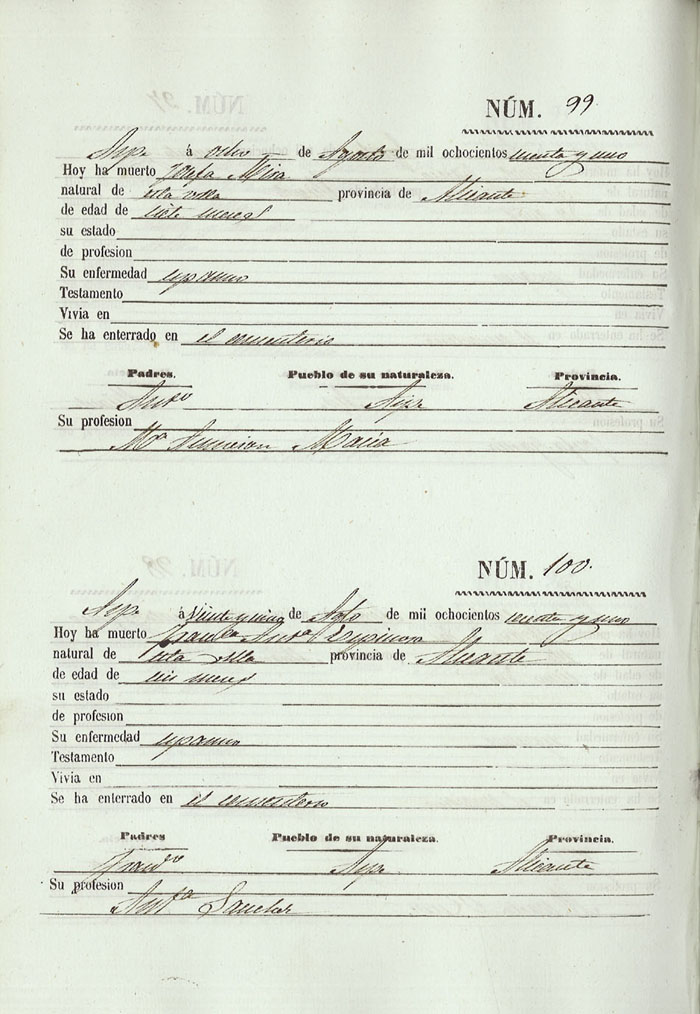 NÚM. 99
Aspe á ocho de Agosto de mil ochocientos cuenta y uno
Hoy ha muerto Josefa Mira
natural de esta villa provincia de Alicante
de edad de siete meses
su estado
de profesion
Su enfermedad espasmo
Testamento
Vivia en
Se ha enterrado en el cementerio
Padres. Pueblo de su naturaleza. Provincia.
Antº Aspe Alicante
Su profesion
Mª Asuncion Macia
NÚM. 100.
Aspe á Veinte y cinco de Agto de mil ochocientos cuenta y uno
Hoy ha muerto Antª
natural de esta villa provincia de Alicante
de edad de seis meses
su estado
de profesion
Su enfermedad espasmo
Testamento
Vivia en
Se ha enterrado en el cementerio
Padres Pueblo de su naturaleza. Provincia.
Franco Aspe Alicante
Su profesion
Antª Sanchez